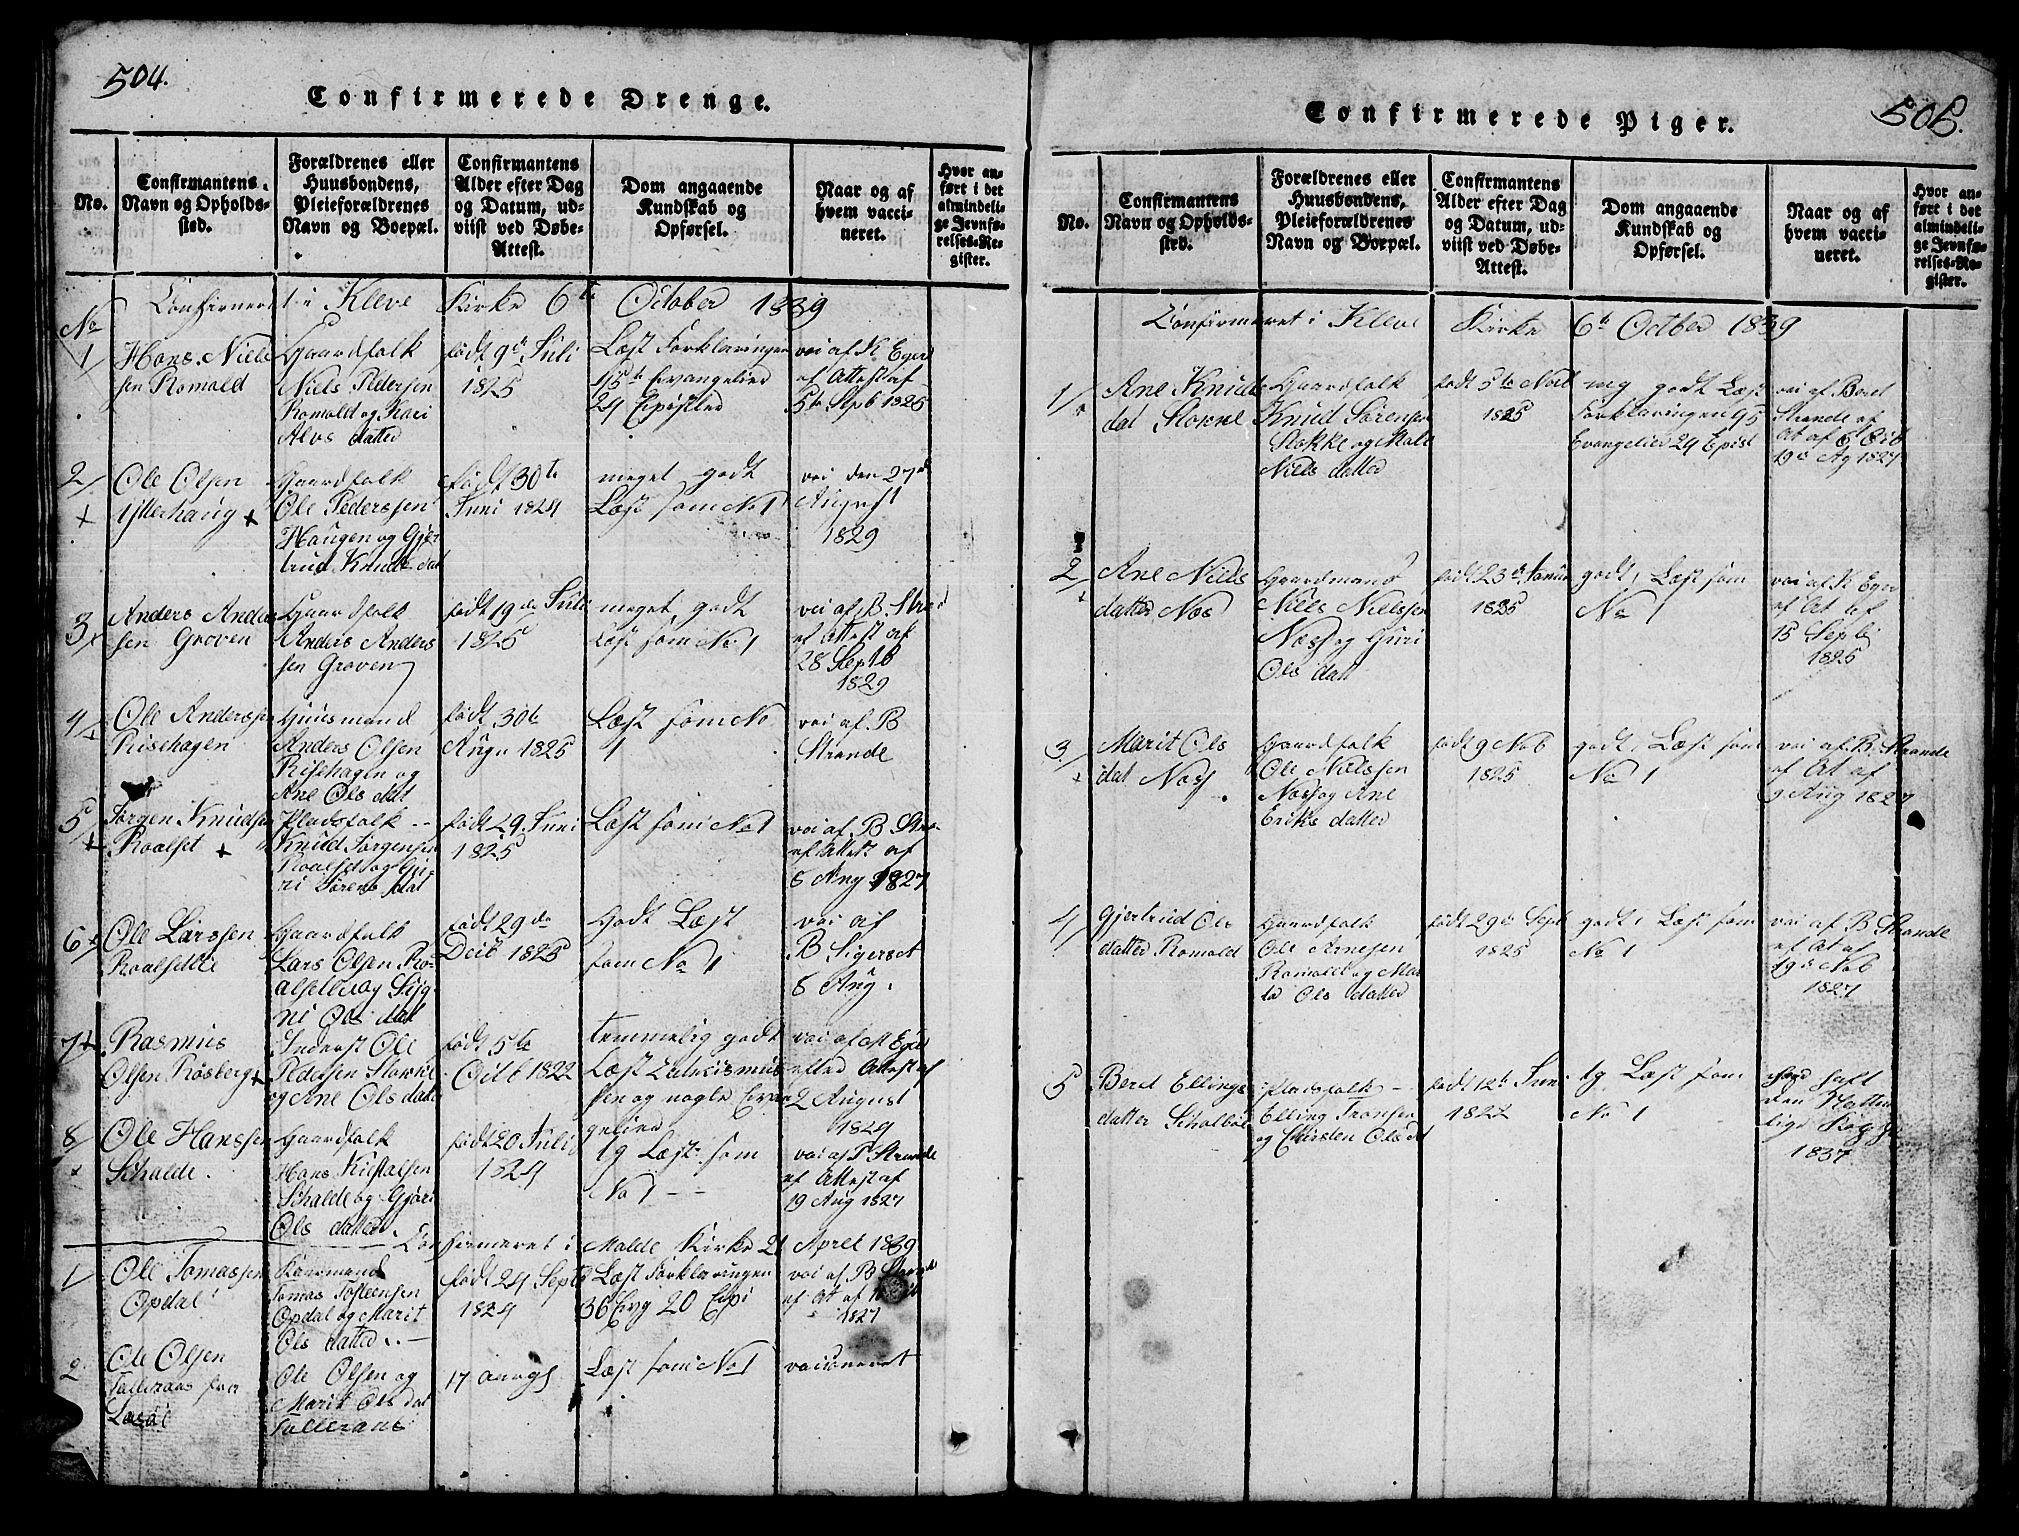 504.
Confirmerede Drenge.
No.
Confirmantens
Navn og Opholds-
sted.
Forældrenes eller
Huusbondens,
Pleieforældrenes
Navn og Boepæl.
Confirmantens
Alder efter Dag
og Datum, ud-
viist ved Døbe-
Attest.
Dom angaaende
Kundskab og
Opførsel.
Naar og af
hvem vacci-
neret.
Hvor an-
ført i det
almindeli-
ge Jevnfø-
relses-Re-
gister.
Confirmeret i Kleve Kirke 6te October 1839
No
1
Hans Niels
sen Romald
Gaardfolk
Niels Pedersen
Romald og Kari
Alvs datter
født 9de Juli
1825
Læst Forklaringen
15de Evangelier
24 Epistler
vai af K. Eger
af Attest af
5te Sepb 1825
2
Ole Olsen
Ytterhaug +
Gaardfolk
Ole Pederssen
Haugen og Gjer
trud Knuds dat
født 30te
Juni 1824
meget godt
Læst som No 1
vai den 27de
August
1829
3
Anders Anders
sen Groven
Gaardfolk
Anders Anders
sen Groven
født 19de Juli
1825
meget godt
Læst som No 1
vai af B. Strand
af Attest af
28 Septb
1829
4
Ole Anderssen
Risehagen
Huusmand
Anders Olsen
Risehagen og
Ane Ols dat
født 30te
Augu 1825
Læst som No
1
vai af B
Strande
5
Jørgen Knudsen
Roalset +
Pladsfolk
Knud Jørgensen
Roalset og Gu
ri Sørens dat
født 29 Juni
1825
Læst som No 1
vai af B Stra
af Attest af
8 Aug 1827
6
Ole Larssen
Roalsetlie
Gaardfolk
Lars Olsen Ro-
alsetlie og Sig
ni Ols dat
født 29de
Deib 1825
Godt Læst
som No 1
vai af
B Sigerset
8 Aug.
7
Rasmus
Olsen Røsberg +
Inderst Ole
Pedersen Stokke
og Ane Ols datter
født 5te
Octb 1822
temmelig godt
Læst Catecismus
sen og nogle Evan
gelier
vai af K Eger
efter Attest af
2 August
1829
8
Ole Hanssen
Schalde.
Gaardfolk
Hans Kristafsen
Schalde og Gjøri
Ols datter
født 20 Juli
1824
tg Læst som
No 1 --
vai af B Strande
af Attest af
19 Aug 1827
Confirmeret i Molde Kirke 21 April 1839
1
Ole Tomassen
Opdal
Kaarmand
Tomas Tosteensen
Opdal og Marit
Ols datter. -
født 24 Septb
1824
Læst Forklaringen
36 Evg 20 Epi
vai af B Strande
af At af
1827
2
Ole Olsen
Talleraas
Ole Olsen og
Marit Ols dat
Talleraas
17 aargl
Læst som No 1
vaicineret
505.
Confirmerede Piger.
No.
Confirmantens
Navn og Opholds-
sted.
Forældrenes eller
Huusbondens,
Pleieforældrenes
Navn og Boepæl.
Confirmantens
Alder efter Dag
og Datum, ud-
viist ved Døbe-
Attest.
Dom angaaende
Kundskab og
Opførsel.
Naar og af
hvem vacci-
neret.
Hvor an-
ført i det
almindeli-
ge Jevnfø-
relses-Re-
gister.
Confirmeret i Kleve Kirke 6te Octber 1839
1
Ane Knuds
dat Stokke
Gaardfolk
Knud Sørensen
Stokke og Male
Niels datter
født 5te Nob
1825
mg godt Læst
Forklaringen 95
Evangelier 29 Epist
vai af Baret
Strande af
At af
19de Ag 1827
2
Ane Niels
datter Næs
Gaardmand
Niels Nielssen
Næss og Guri
Ols datt
født 23de Janua
1825
godt, Læst som
No 1
vai af K Eger
af At af
15 Septb
1825
3
Marit Ols
dat Næss
Gaardfolk
Ole Nielssen
Næss og Ane
Eriks datter
født 9 Nob
1825
godt, Læst som
No 1
vai af B. Strande
af At af
9 Aug 1827
4
Gjertrud Ols
datter Romald
Gaardfolk
Ole Arnesen
Romald og Mar
ta Ols datter
født 29de Sept
1825
godt, Læst som
No 1
vai af B Strande
af At af
19de Nob
1827
5
Beret Ellings
datter Schalbøl
Pladsfolk -
Elling Tronsen
og Kirsten Ols dat
født 12te Juni
1822
tg Læst som
No 1
har haft
den Natur
lige Kopper
1837